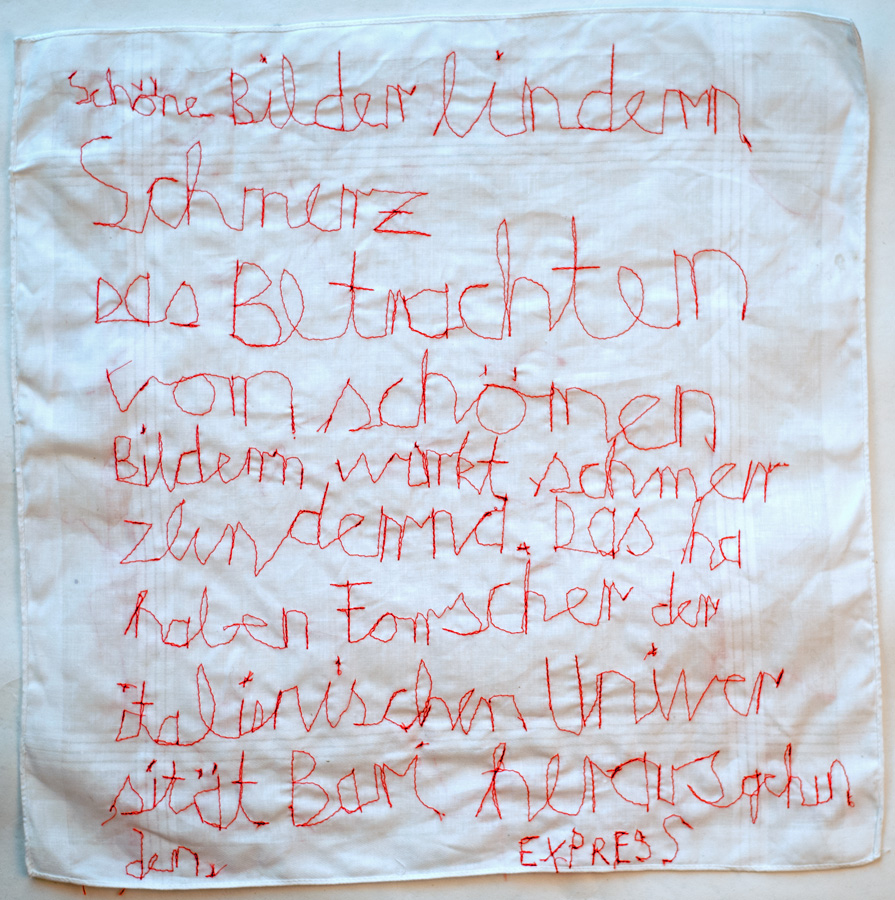 Schöne Bilder lindern
Schmerz
Das Betrachten
von schönen
Bildern wirkt schmerz
zlindernd. Das ha
haben Forscher der
italienischen Univer
sität Bari herausgefun
den.
EXPRESS